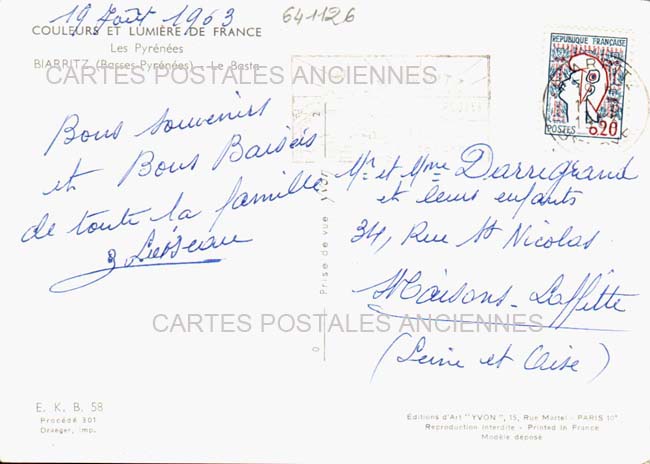 19 Août 1963
641126
COULEURS ET LUMIÈRE DE FRANCE
Les Pyrénées
BIARRITZ (Basses-Pyrénées) - Le Basta
CARTES POSTALES ANCIENNES
REPUBLIQUE FRANÇAISE
POSTES 0.20
Bons souvenirs
et Bons Baisers
de toute la famille
Mr et Mme Darrigrand
et leurs enfants
34, Rue St Nicolas
Maisons-Laffitte
(Seine et Oise)
Prise de vue
CARTES POSTALES ANCIENNES
E. K. B. 58
Procédé 301
Draeger, Imp.
Editions d'Art "YVON", 15, Rue Martel - PARIS 10e
Reproduction interdite - Printed in France
Modèle déposé